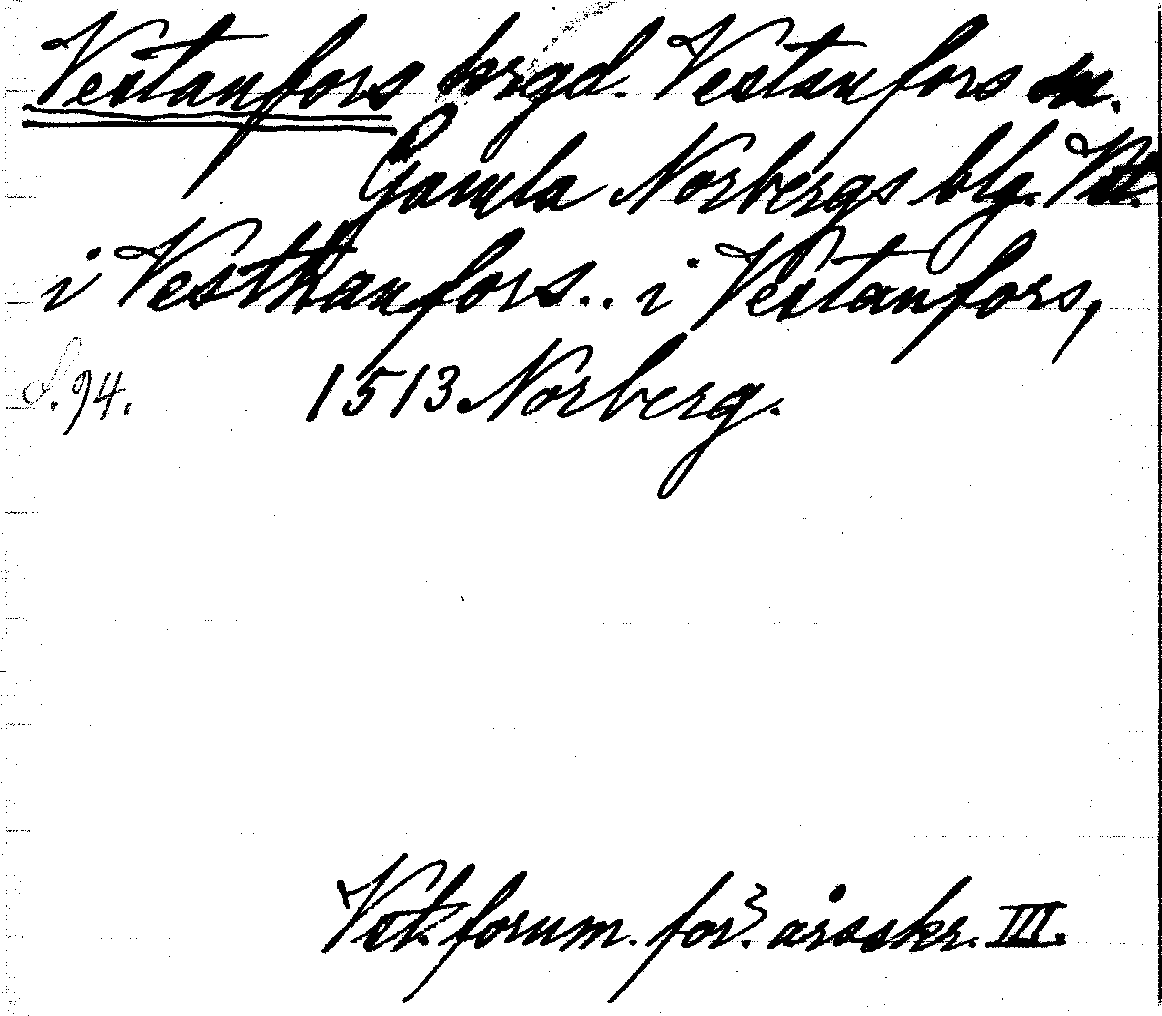 Vestanfors brgd. Vestanfors sn.
Gamla Norbergs blg. Vstl.
i Vesthanfors.. i Vestanfors,
S. 94. 1513 Norberg.
Vstl. fornm.för. årsskr. III.